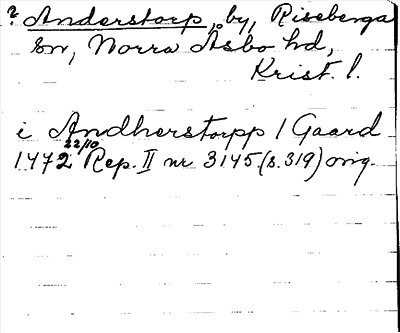 ? Anderstorp, by, Riseberga
sn, Norra Åsbo hd,
Krist. l.
i Andherstorpp 1 Gaard
1472 22/10 Rep. II nr 3145 (s. 319) orig.